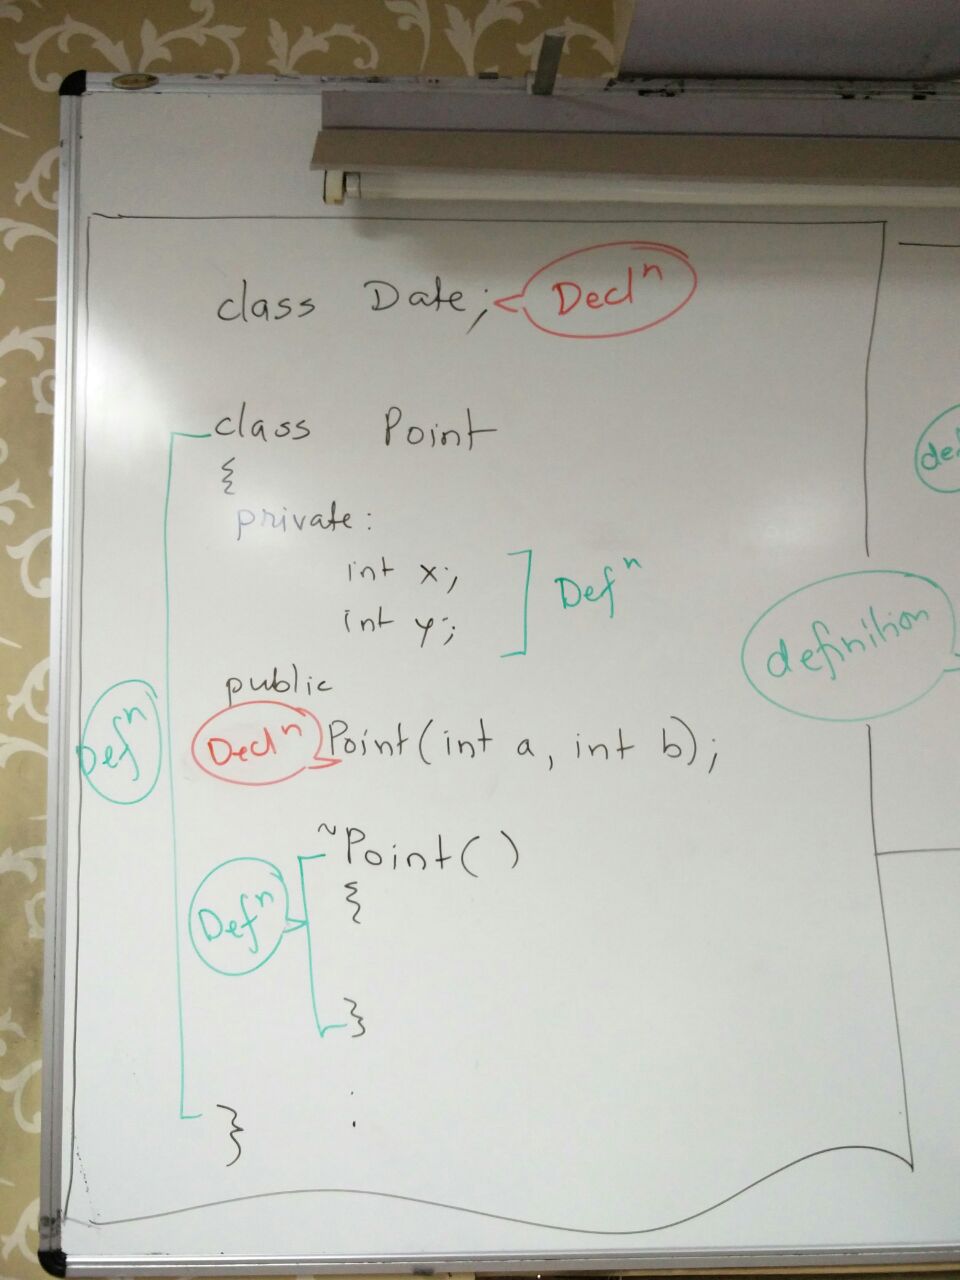 class Date; Declⁿ
class Point
{
private:
int x;
int y; Defⁿ
public
Declⁿ Point(int a, int b);
Defⁿ
~Point()
{
Defⁿ
}
}
definition